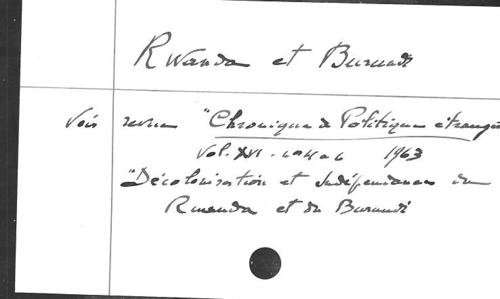 Rwanda et Burundi
Voir revue "Chronique de Politique étrangè
Vol. XVI - n°s 4 à 6 1963
"Décolonisation et Indépendance du
Rwanda et du Burundi